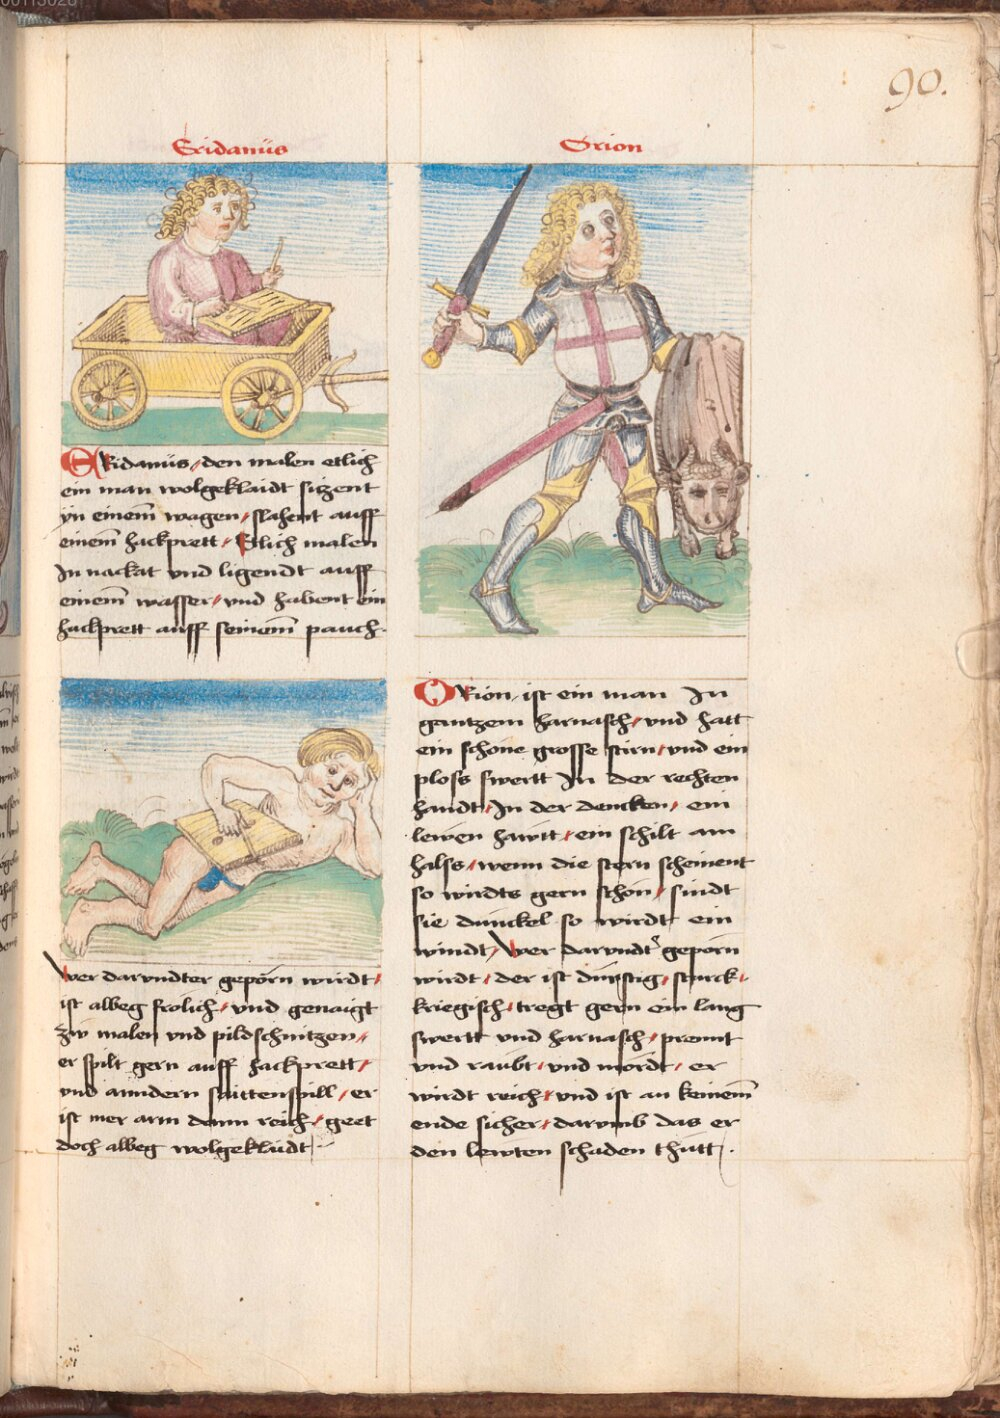 90.
Eridanüs
ERidanüs, den malen etlich
ein man wolgeklaidt siczent
yn einem̄ wagen, slahent auff
einem̄ hackprett, Etlich malen
In nackat vnd ligendt auff
einem̄ wasser, vnd habent ein
hackprett auff seinem̄ pauch.
Wer darvndter geporn wirdt,
ist albeg frölich, vnd genaigt
zw malen vnd pildschnitzen,
er spilt gern auff hackprett,
vnd anndern saittenspill, er
ist mer arm dann reich, geet
doch albeg wolgeklaidt.
Orion
ORion, ist ein man In
gantzem harnasch, vnd hatt
ein schone grosse stirn, vnd ein
ploss swertt In der rechten
handt, In der dencken, ein
lewen hawtt, ein schilt am
halss, wenn die stern scheinent
so wirdts gern schön, sindt
sie dunckel so wirdt ein
windt, Wer darvndt' geporn
wirdt, der ist dürstig, starck,
kriegisch, tregt gern ein lang
swertt vnd harnasch, prennt
vnd raubt, vnd mördt, er
wirdt reich, vnd ist an keinem̄
ende sicher, darvmb das er
den lewten schaden thütt.